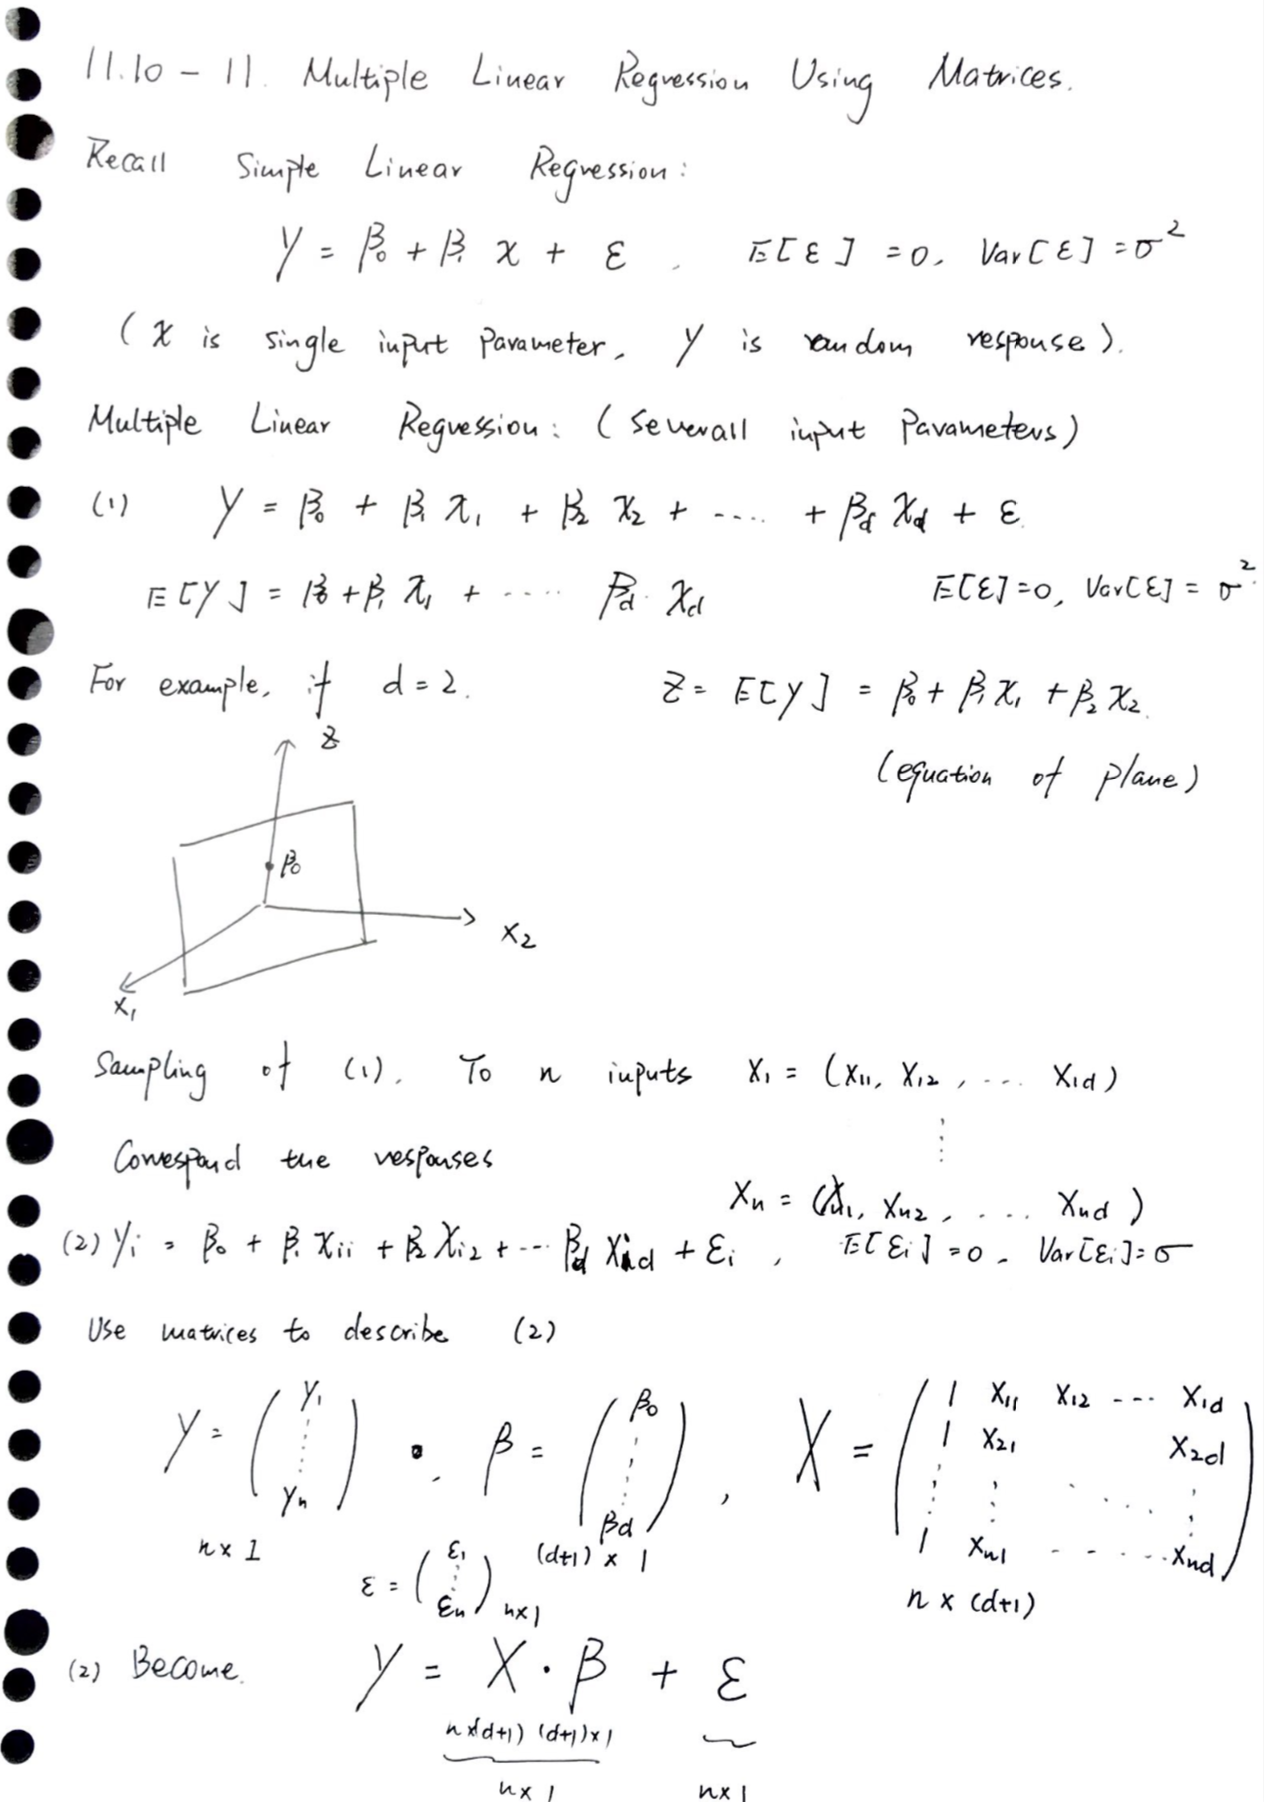 11.10 - 11. Multiple Linear Regression Using Matrices.
Recall Simple Linear Regression:
Y = β₀ + β₁ x + ε . E[ε] = 0, Var[ε] = σ²
(x is single input parameter, Y is random response).
Multiple Linear Regression: (severall input parameters)
(1) Y = β₀ + β₁ x₁ + β₂ x₂ + .... + β_d x_d + ε.
E[Y] = β₀ + β₁ x₁ + ..... β_d. x_d E[ε]=0, Var[ε] = σ².
For example, if d = 2. z = E[Y] = β₀ + β₁ x₁ + β₂ x₂.
(equation of plane)
z
β₀
x₂
x₁
Sampling of (1). To n inputs x₁ = (x₁₁, x₁₂, .... x₁d)
⋮
Correspond the responses
xₙ = (xₙ₁, xₙ₂, .... xₙd)
(2) Yᵢ = β₀ + β₁ xᵢᵢ + β₂ xᵢ₂ + ... β_d xᵢd + εᵢ , E[εᵢ] = 0. Var[εᵢ] = σ
Use matrices to describe (2)
Y = (y₁ ⋮ yₙ) , β = (β₀ ⋮ βd) , X = (1 x₁₁ x₁₂ ---- x₁d
1 x₂₁ x₂d
⋮ ⋮ ⋱ ⋮
1 xₙ₁ - ..... xₙd)
n x 1 (d+1) x 1 n x (d+1)
ε = (ε₁ ⋮ εₙ) nx1
(2) Become. Y = X · β + ε
nx(d+1) (d+1)x1
nx1 nx1